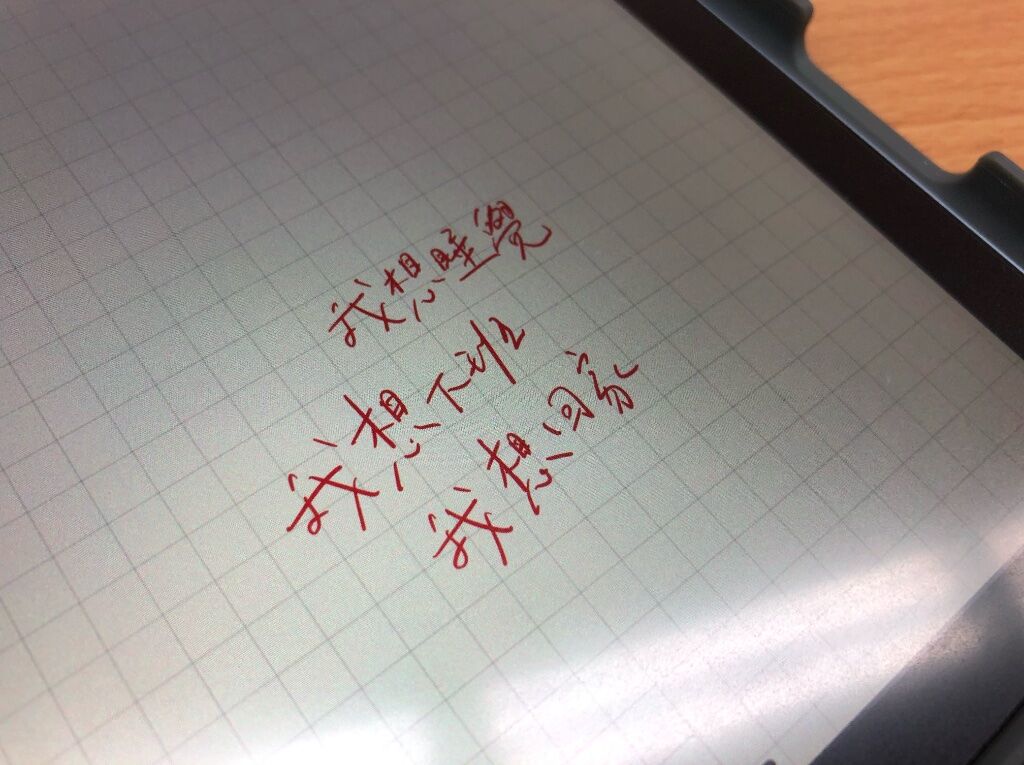 我想睡覺
我想下班
我想回家